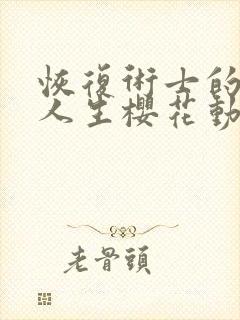 恢復術士的
人生櫻花動
老骨頭